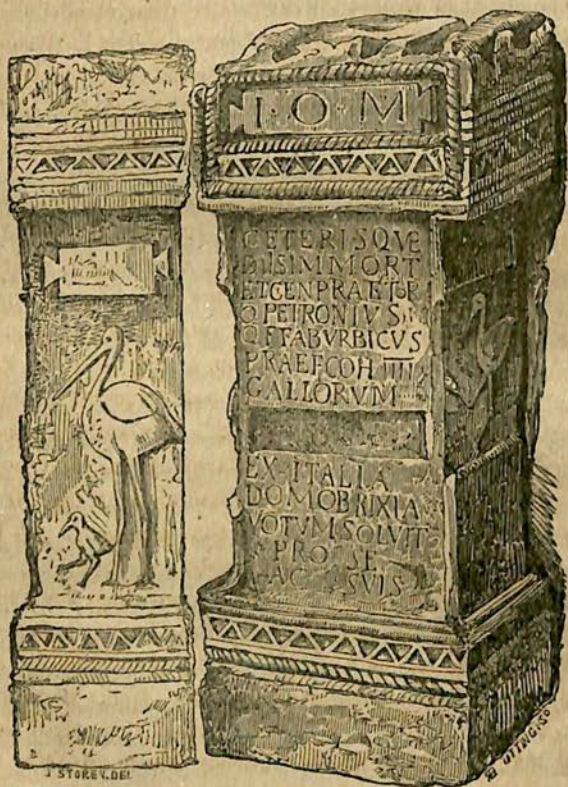 I·O·M
CETERISQVE
DIISIMMORT
ETGENPRAETOR
Q PETRONIVS
Q F FAB VRBICVS
PRAEF COH IIII
GALLORVM
EX·ITALIA
DOMOBRIXIA
VOTVMSOLVIT
PRO SE
AC SVIS
J STOREY. DEL
UTTING. SC